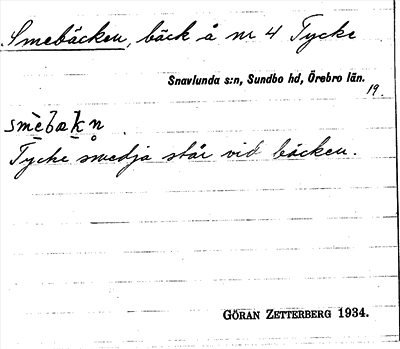 Smebäcken, bäck å nr 4 Tycke
Snavlunda s:n, Sundbo hd, Örebro län.
19.
Tycke smedja står vid bäcken.
GÖRAN ZETTERBERG 1934.